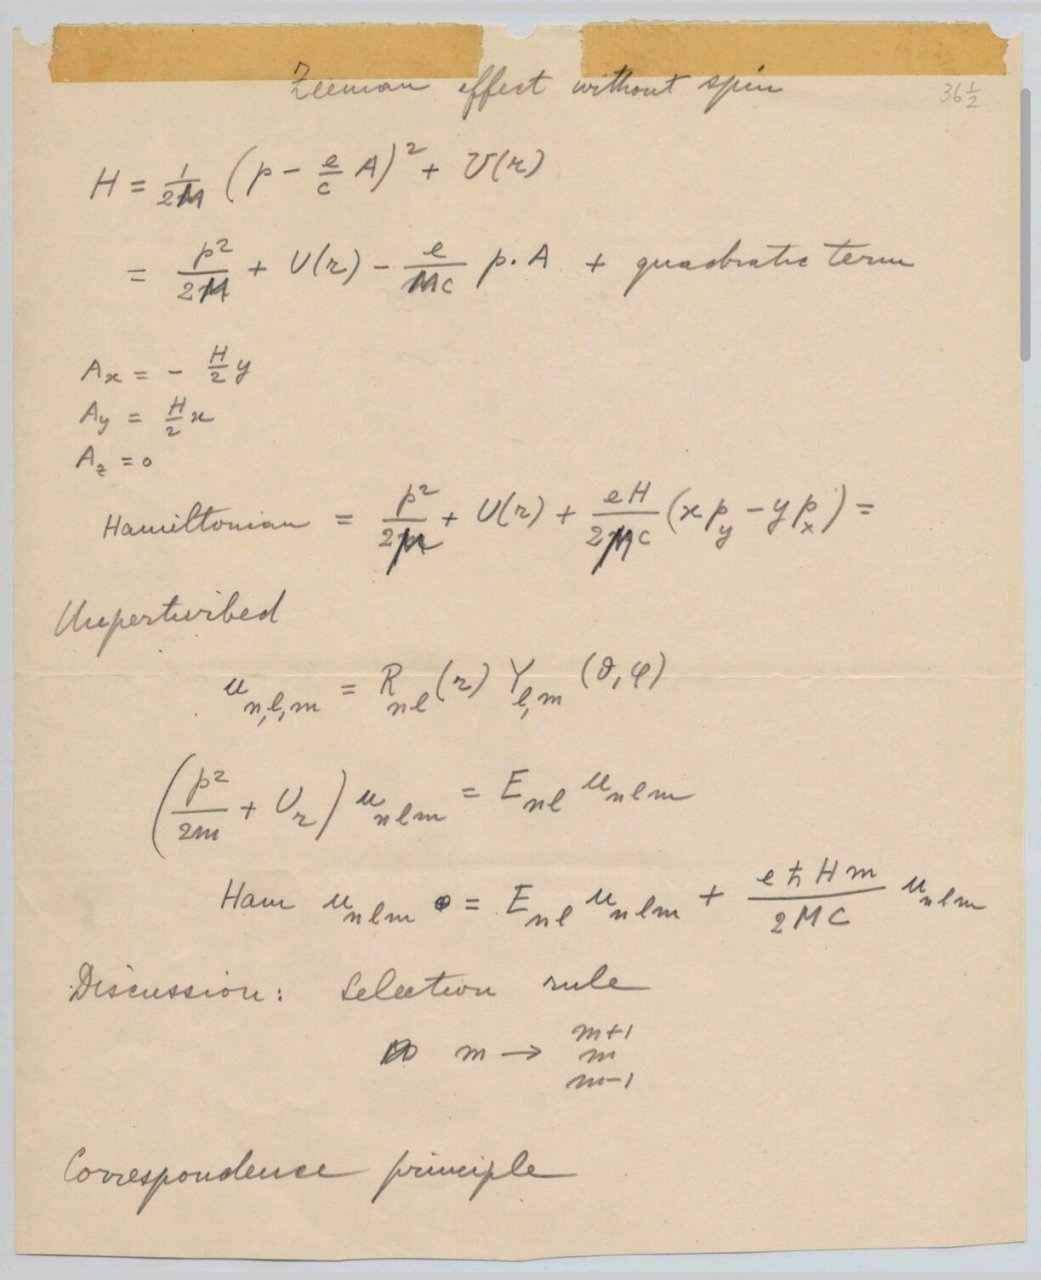 Zeeman effect without spin
36 1/2
H = 1/2M (p - e/c A)² + U(r)
= p²/2M + U(r) - e/Mc p·A + quadratic term
Aₓ = - H/2 y
A_y = H/2 x
A_z = 0
Hamiltonian = p²/2M + U(r) + eH/2Mc (x p_y - y p_x) =
Unperturbed
u_{n,l,m} = R_{nl}(r) Y_{l,m} (ϑ, φ)
(p²/2m + U_r) u_{nlm} = E_{nl} u_{nlm}
Ham u_{nlm} = E_{nl} u_{nlm} + eħHm/2MC u_{nlm}
Discussion: Selection rule
m → m+1
m
m-1
Correspondence principle